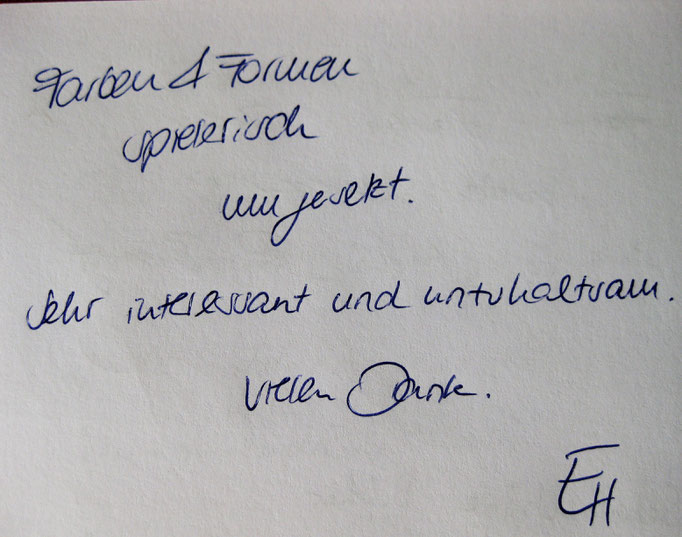 Farben & Formen
spielerisch
umgesetzt.
Sehr interessant und unterhaltsam.
Vielen Dank.
EH